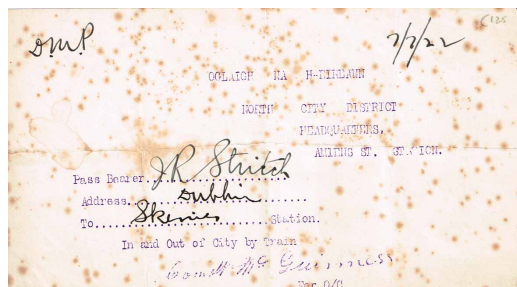 D.M.P 7/7/22 C125
OGLAIGH NA H-EIREANN
NORTH CITY DISTRICT
HEADQUARTERS,
AMIENS ST. STATION.
Pass Bearer. J.R Stritch
Address. Dublin
To. Skerries Station.
In and Out of City by Train
McGuinness
For O/C